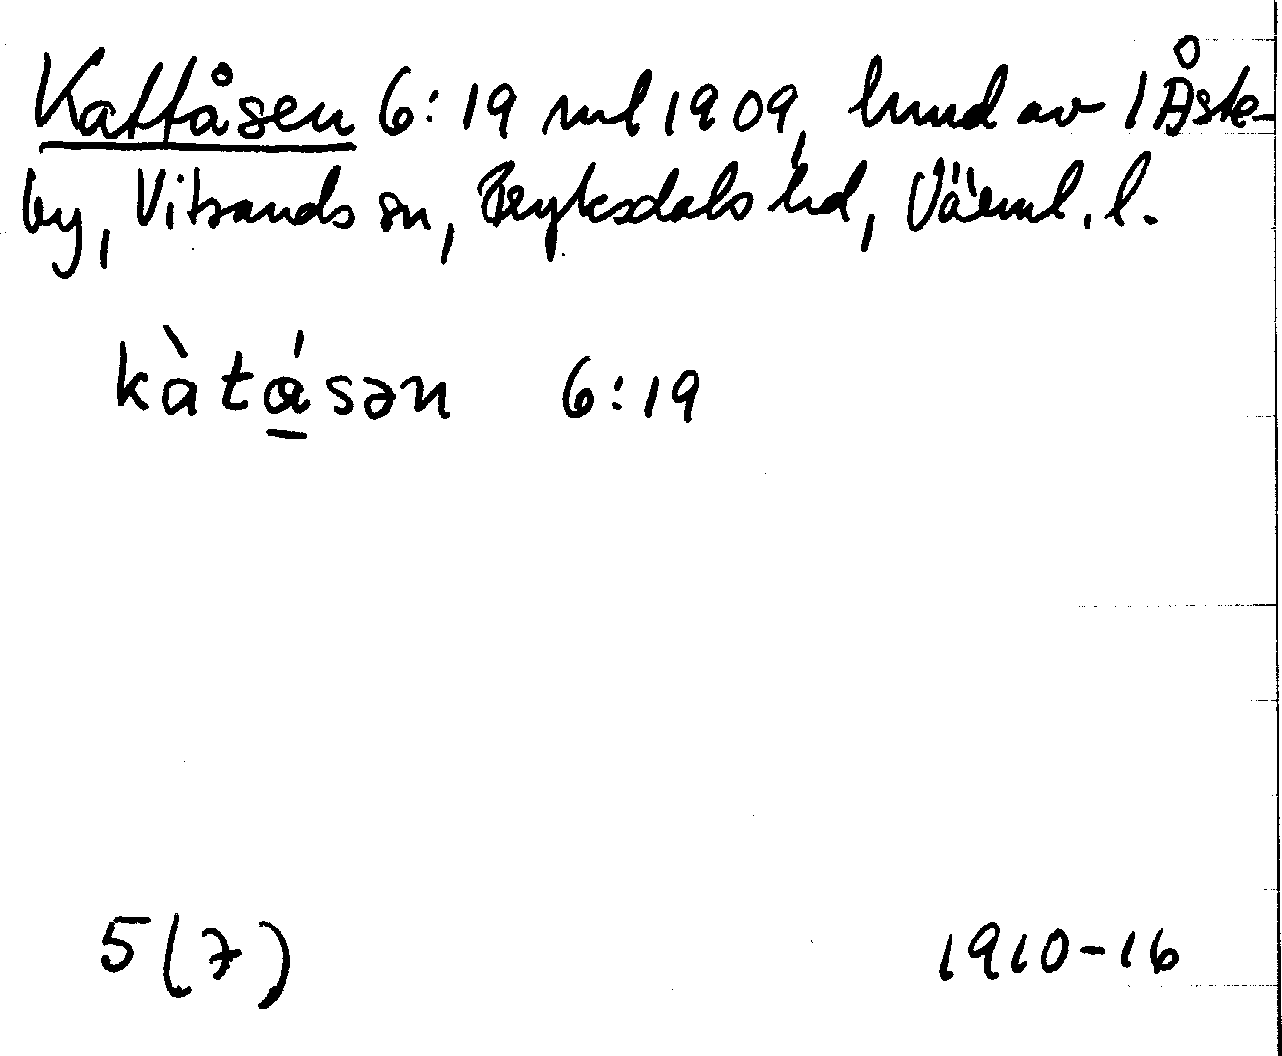 Kattåsen 6:19 ml 1909, hmd av 1 Åste-
by, Vitsands sn, Fryksdals hd, Värml. l.
kàtά̱sən 6:19
5 (7) 1910-16